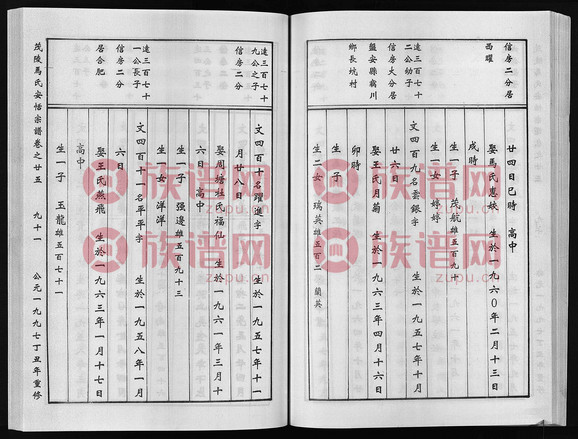 信房二分居
西曜
廿四日巳時 高中
娶馬氏惠妹 生於一九六〇年二月十三日
戌時
生一子 茂航雄五百九十
生一女 婷婷
遠三百七十
二公幼子
信房大分居
盤安縣窈川
鄉長坑村
文四百九名雲銀字 生於一九五七年十月
廿六日
娶王氏月菊 生於一九六三年四月十六日
卯時
生子
生二女 瑞英雄五百二 蘭英
遠三百七十
九公之子
信房二分
文四百十名躍進字 生於一九五七年十一
月廿八日
娶周塘莊氏福仙 生於一九六一年三月十
六日 高中
生一子 强邊雄五百九十三
生一女 洋洋
遠三百七十
一公長子
信房二分
居合肥
文四百十一名平平字 生於一九五八年一月
六日
娶王氏燕飛 生於一九六三年一月十七日
高中
生一子 玉龍雄五百七十一
茂陵馬氏安恬宗譜卷之廿五 九十一 公元一九九七丁丑年重修
族谱网
zupu.cn
族谱网
zupu.cn
族谱网
zupu.cn
族谱网
zupu.cn